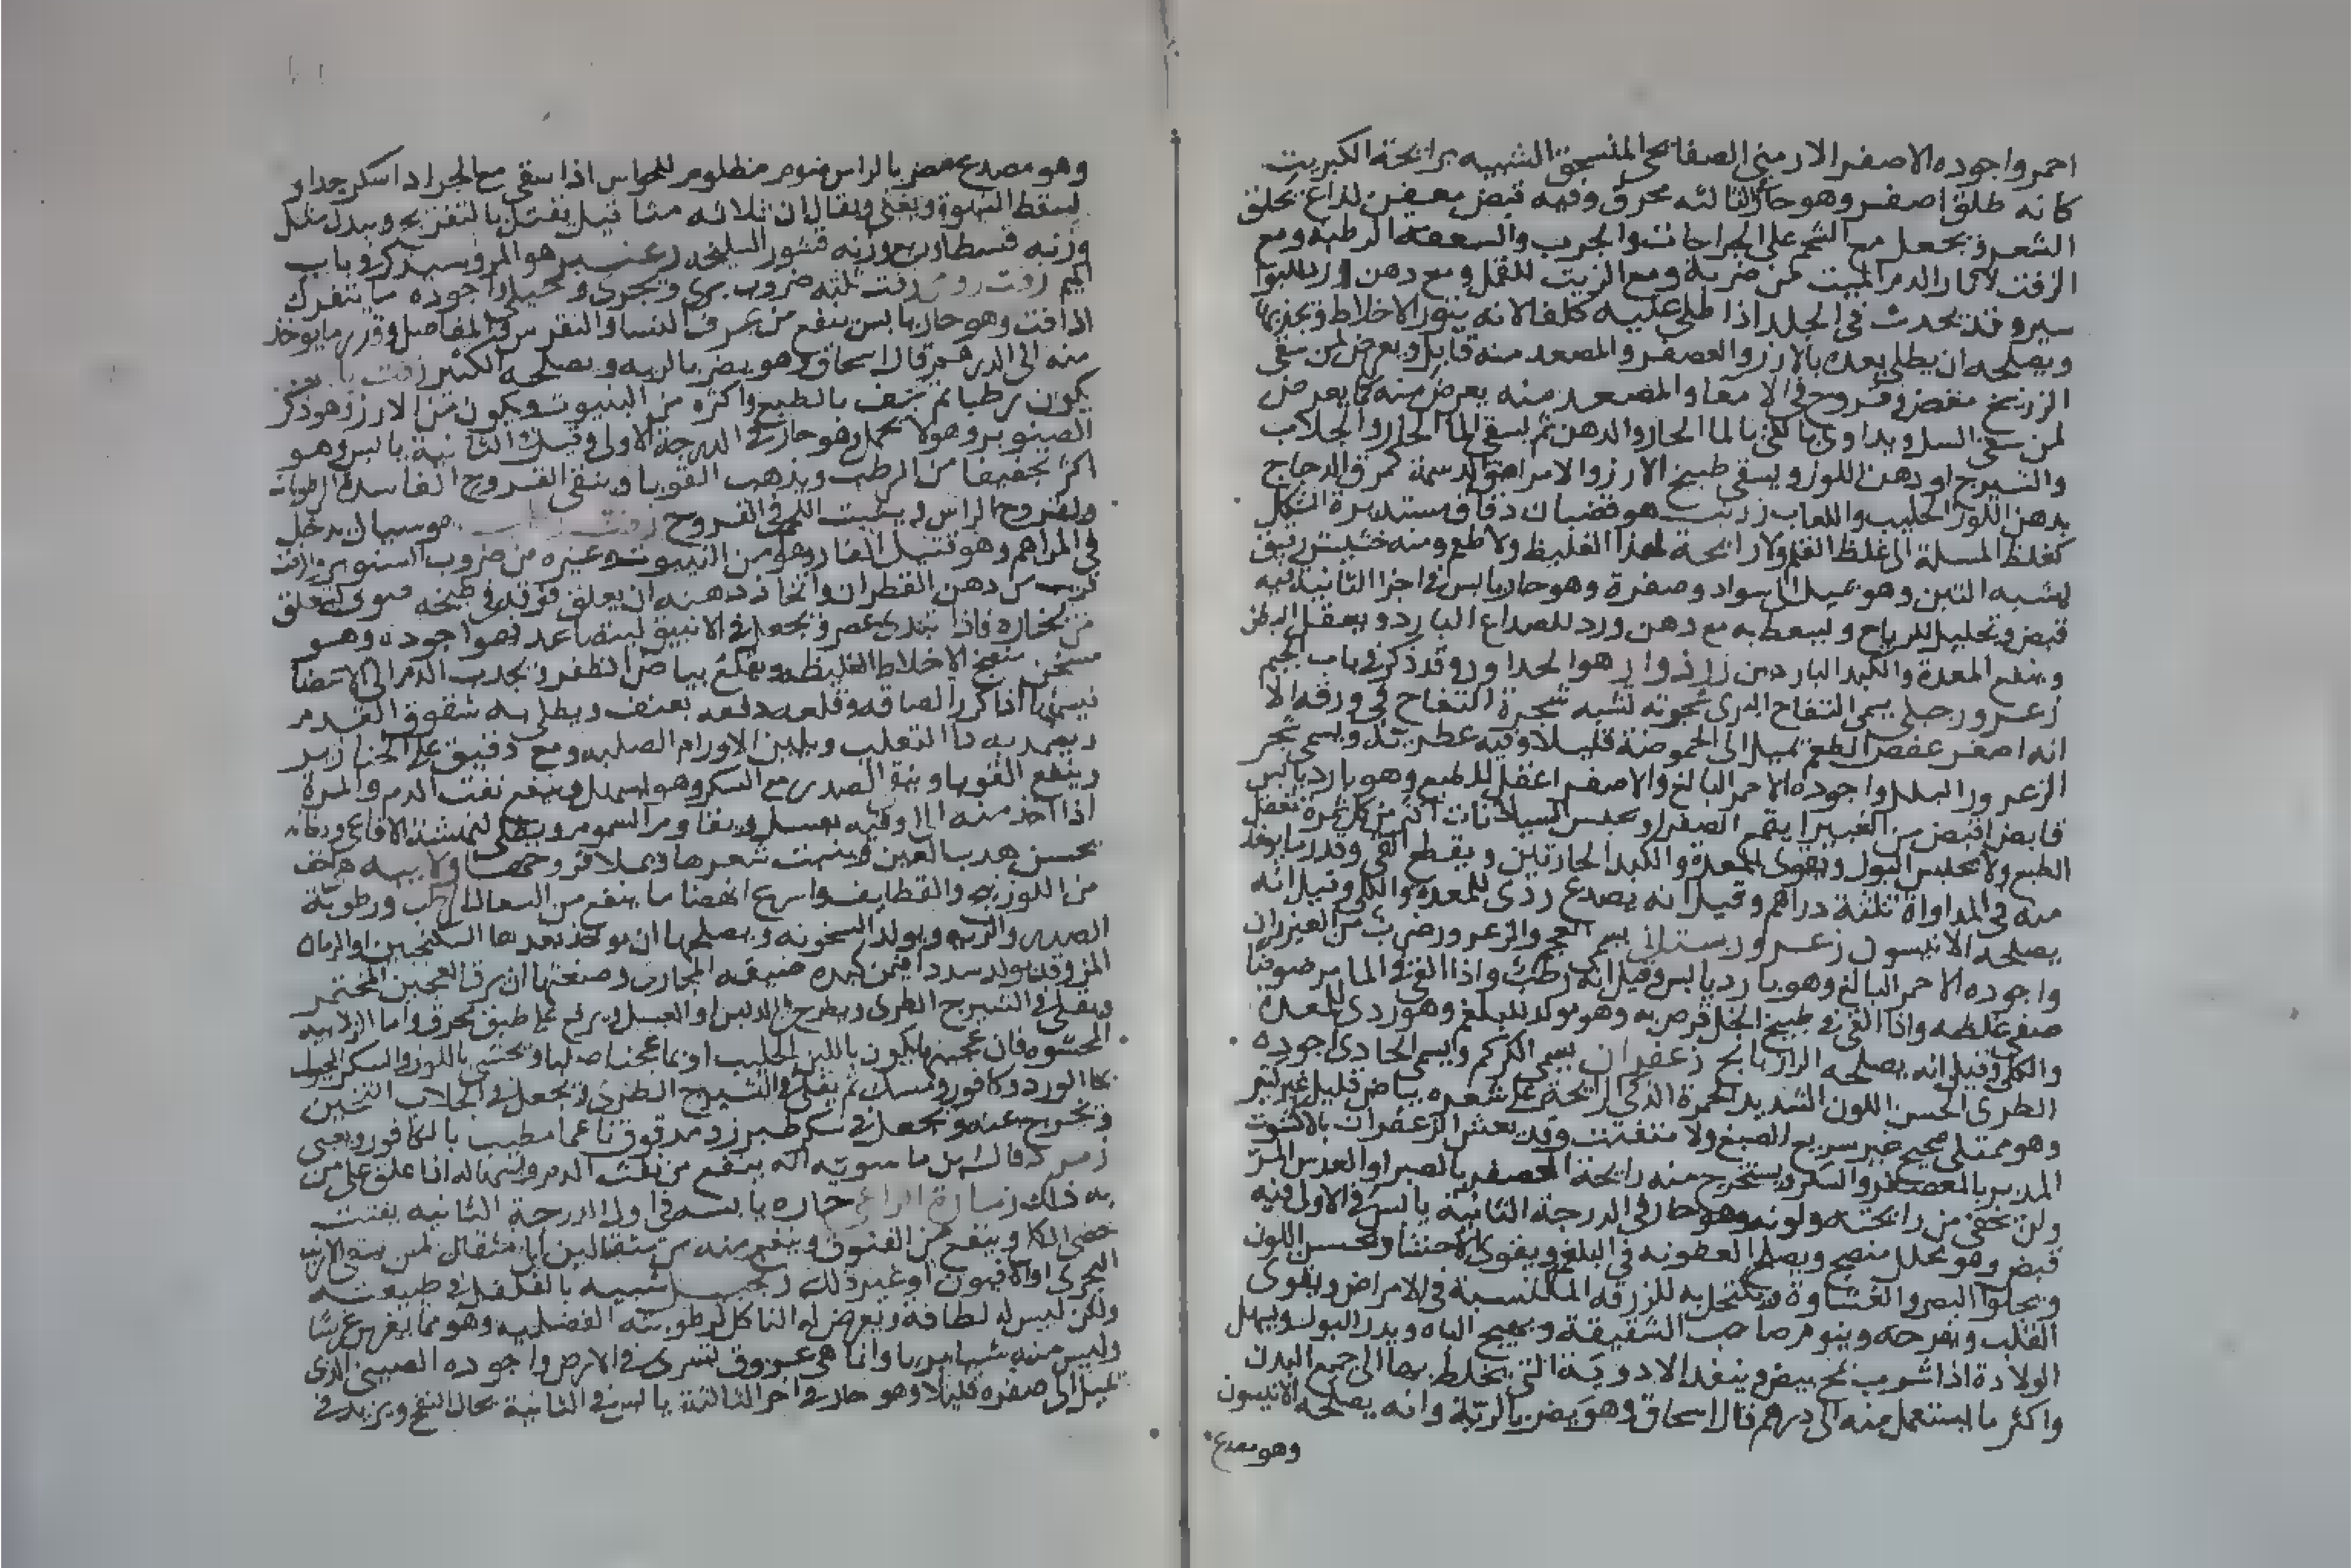 احمر واجوده الاصفر الارمني الصفائحي المنسحق الشبيه برائحة الكبريت
كانه طلق اصفر وهو حار في الثالثه محرق وفيه قبض معفن لذاع يحلق
الشعر ويجعل مع الشحم على الجراحات والجرب والسعفه الرطبه ومع
الزفت لاثار الدم الميت من ضربة ومع الزيت للقمل ومع دهن ورد للبواسير
وقد يحدث في الجلد اذا طلي عليه كلفا لانه يثور الاخلاط ويجذبها
ويصلحه ان يطلى بعده بالارز والعصفر والمصعد منه قاتل ويعرض لمن سقي
الزرنيخ مغص وقروح في الامعا والمصعد منه يعرض منه كما يعرض
لمن سقي السل ويداوى بالقي بالما الحار والدهن ثم يسقى الما الحار والجلاب
والشيرج او دهن اللوز ويسقى طبيخ الارز والامراق الدسمة كمرق الدجاج
بدهن اللوز الحليب واللعاب زرنب هو قضبان دقاق مستديرة الشكل
كغلظ المسلة الى غلظ القلم ولا رائحة لهذا الغليظ ولا طعم ومنه خشبي رقيق
يشبه التبن وهو يميل الى سواد وصفرة وهو حار يابس في اخر الثانية فيه
قبض وتحليل للرياح ويسعط به مع دهن ورد للصداع البارد ويعقل البطن
وينفع المعدة والكبد الباردين زرذوار هو الجدوار وقد ذكر في باب الجيم
زعرور جبلي يسمى التفاح البري شجرته تشبه شجرة التفاح في ورقه الا
انه اصغر عفص الطعم يميل الى الحموضة قليلا وفيه عطرية ويسمى شجر
الزعرور الملل واجوده الاحمر البالغ والاصفر اعقل للطبع وهو بارد يابس
قابض اقبض من الغبيرا يقمع الصفرا ويحبس السيلانات اكثر من كل ثمرة تعقل
الطبع ولا يحبس البول ويقوى المعدة والكبد الحارتين ويقطع القي وقدر ما يوخذ
منه في المداواة ثلثة دراهم وقيل انه يصدع ردى للمعدة والكلى وقيل انه
يصلحه الانيسون زعرور بستاني يسمى العجم والزعرور ضرب من العيزران
واجوده الاحمر البالغ وهو بارد يابس وقيل انه رطب واذا القي في الما مرضوضا
صفى غلظه واذا القي في طبيخ الخل قرصه وهو مولد للبلغم وهو ردى للمعدة
والكلى وقيل انه يصلحه الرازيانج زعفران يسمى الكركم ويسمى الجادى اجوده
الطرى الحسن اللون الشديد الحمرة الذكي الرائحة على شعره بياض قليل غير كثير
وهو ممتلى صحيح غير سريع الصبغ ولا متفتت وقد يغش الزعفران بالكشوت
المدبر بالعصفر والسكر ويستخرج منه رائحة العصفر بالصبر او العدس المر
ولن يخفى من رائحته ولونه وهو حار في الدرجة الثانية يابس في الاولى فيه
قبض وهو محلل منضج ويصلح العفونه في البلغم ويقوى الاحشا ويحسن اللون
ويجلو البصر والغشاوة ويكتحل به للزرقه المكتسبة في الامراض ويقوى
القلب ويفرحه وينوم صاحب الشقيقة ويهيج الباه ويدر البول ويسهل
الولادة اذا شرب نح بيض وينفذ الادوية التي يخلط بها الى جميع البدن
واكثر ما يستعمل منه الى درهم قال اسحاق وهو يضر بالرئة وانه يصلحه الانيسون
وهو مصدع
وهو مصدع مضر بالراس منوم مظلوم للحواس اذا سقي مع الجراد اسكر جدا و
يسقط الشهوة ويغثي ويقال ان ثلاثه مثاقيل يقتل بالتفزيح وبدل مثل
وزنه قسط وربع وزنه قشور السليخه زعنبر هو المرو وسيذكر في باب
الميم زفت رومي زفت ثلثه ضروب برى وبحرى وجبلي واجوده ما يتفرك
اذا فت وهو حار يابس ينفع من عرق النسا والنقرس والمفاصل وقدر ما يوخذ
منه الى الدرهم قال اسحاق وهو يضر بالريه ويصلحه الكثير زفت يابس
يكون رطبا ثم يجف بالطبخ واكثره من الينبوت ويكون من الارز وهو ذكر
الصنوبر وهو لا يحمل وهو حار في الدرجة الاولى وقيل في الثانية يابس وهو
اكثر تجفيفا من الرطب ويذهب القوبا وينقى القروح الفاسدة الرطوبات
ولقروح الراس وينبت اللحم في القروح زفت رطب هو سيال يدخل
في المراهم وهو ثقيل العفار وهو من الينبوت وغيره من ضروب الصنوبر والزفت
قريب من دهن القطران واتخاذ دهنه ان يعلق فوقه في طبخه صوف يتعلق
من بخاره فاذا تندى عصر ويجعل في الانبيق ليتصاعد فهو اجوده وهو
مسخن منضج الاخلاط الغليظه ويقلع بياض الظفر ويجذب الدم الى الاعضا
فيسمنها اذا كرر الصاقه وقلعه دفعه بعنف ويطلى به شقوق القدم
ويضمد به دا الثعلب ويلين الاورام الصلبه ومع دقيق على الخنازير
وينفع القوبا وينقى الصدر مع السكر وهو يسهل وينفع نفث الدم والمرة
اذا اخذ منه الى اوقيه بعسل ويقاوم السموم ويطلى لنهشة الافاعي ودخانه
يحسن هدب العين وينبت شعرها ويملا قروحها زلابيه هي اخف
من اللوزينج والقطايف واسرع انهضاما ينفع من السعال الرطب ورطوبة
الصدر والريه ويولد السخونه ويصلحها ان يوخذ بعدها السكنجبين او الرمان
المز وقد يولد سددا فيمن كبده ضيقه المجارى وصنعتها ان يرق العجين المختمر
ويقلى في الشيرج الطرى ويطرح في الدبس او العسل ويرفع على طبق محرق واما الزلابيه
المحشوه فان عجينها يكون باللبن الحليب اونما عجنا صلبا وتحشى باللوز والسكر المجبول
بما الورد وكافور ومسك ثم يقلى في الشيرج الطرى ويجعل في الجلاب الثخين
ويخرج عنه ويجعل في سكر طبرزد مدقوق ناعما مطيب بالكافور ويعبى
زمرد قال ابن ماسويه انه ينفع من نفث الدم واسهاله اذا علق على من
به ذلك زمارة الراعي حاره يابسه في اول الدرجة الثانيه يفتت
حصى الكلى وينفع من الفتوق وينفع منه من مثقالين الى مثقال لمن سقي الارنب
البحرى او الافيون او غير ذلك زنجبيل شبيه بالفلفل في طبيعته
ولكن ليس له لطافة ويعرض له التاكل لرطوبته الفضليه وهو مما يغرس غرسا
وليس منه شيا بريا وانما هي عروق تسرى في الارض واجوده الصيني الذى
يميل الى صفره قليلا وهو حار في اخر الثالثة يابس في الثانية يحلل النفخ ويزيد في